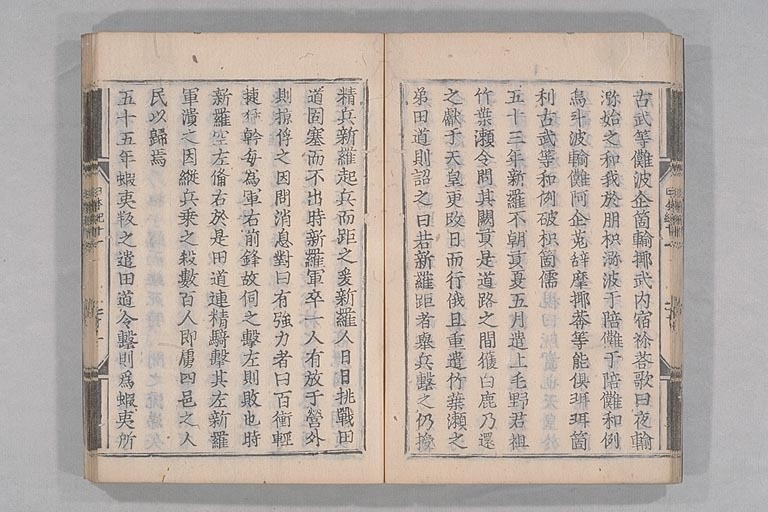 古武等儺波企箇輸揶武内宿祢荅歌曰夜輸
瀰始之和我於朋枳瀰波于陪儺于陪儺和例
烏斗波輸儺阿企菟辞摩揶等能倶珥珥箇
利古武等和例破枳箇儒
五十三年新羅不朝貢夏五月遣上毛野君祖
竹葉瀬令問其闕貢是道路之間獲白鹿乃還
之獻于天皇更改日而行俄且重遣竹葉瀬之
弟田道則詔之曰若新羅距者舉兵擊之仍授
精兵新羅起兵而距之爰新羅人日日挑戰田
道固塞而不出時新羅軍卒一人有放于營外
則掠俘之因問消息對曰有強力者曰百衝輕
捷猛幹毎為軍右前鋒故伺之擊左則敗也時
新羅空左備右於是田道連精騎擊其左新羅
軍潰之因縱兵乗之殺數百人即虜四邑之人
民以歸焉
五十五年蝦夷叛之遣田道令擊則爲蝦夷所